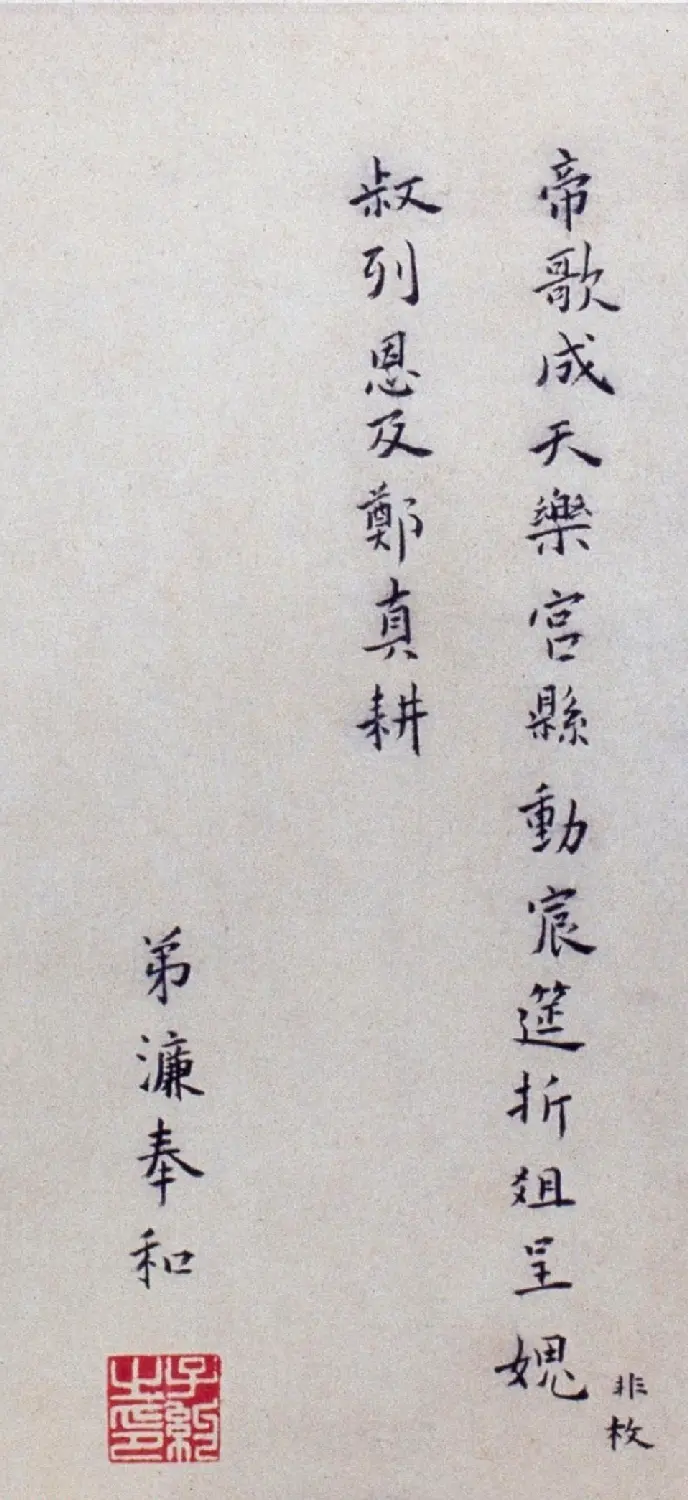 帝歌成天樂宮縣動宸筵折俎呈媿
非枚
叔列恩及鄭真耕
弟濂奉和
子約之印